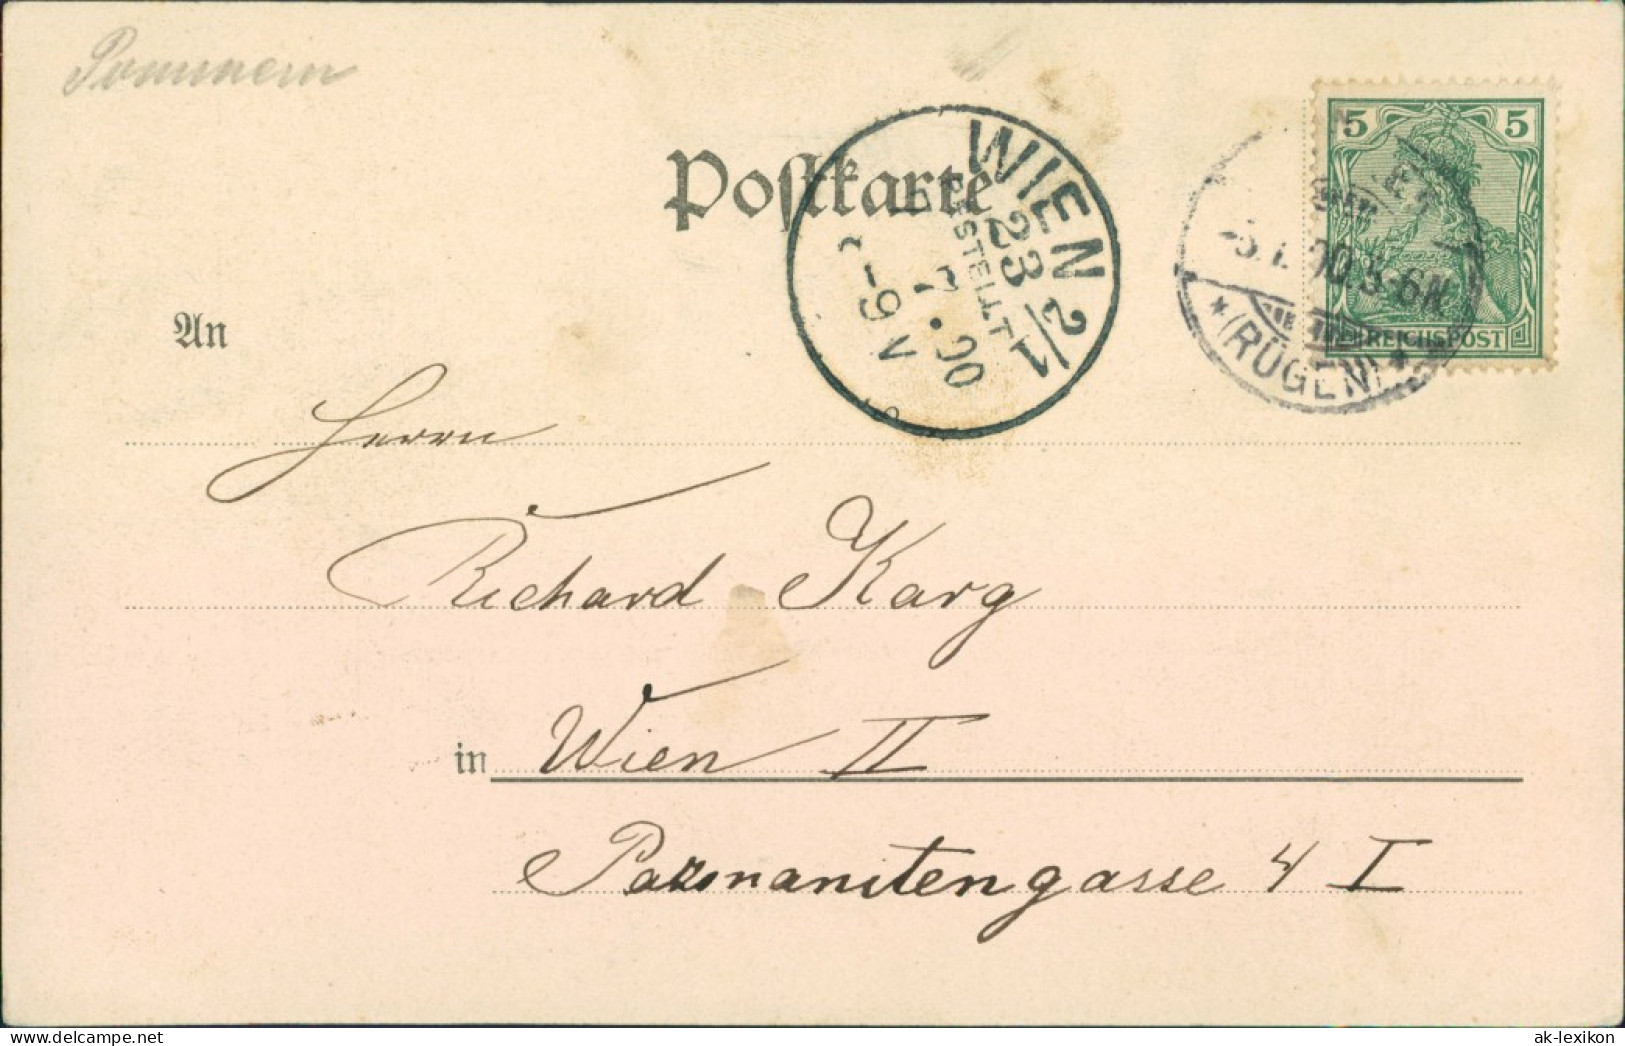 Pommern
Postkarte
WIEN 2/1
23
BESTELLT
7. 00
-9 V
5 5
REICHSPOST
-5.7.00.5-6N.
*(RÜGEN)*
An
Herrn
Richard Karg
in Wien II
Pazmanitengasse 4 I
delcampe.net
ak-lexikon